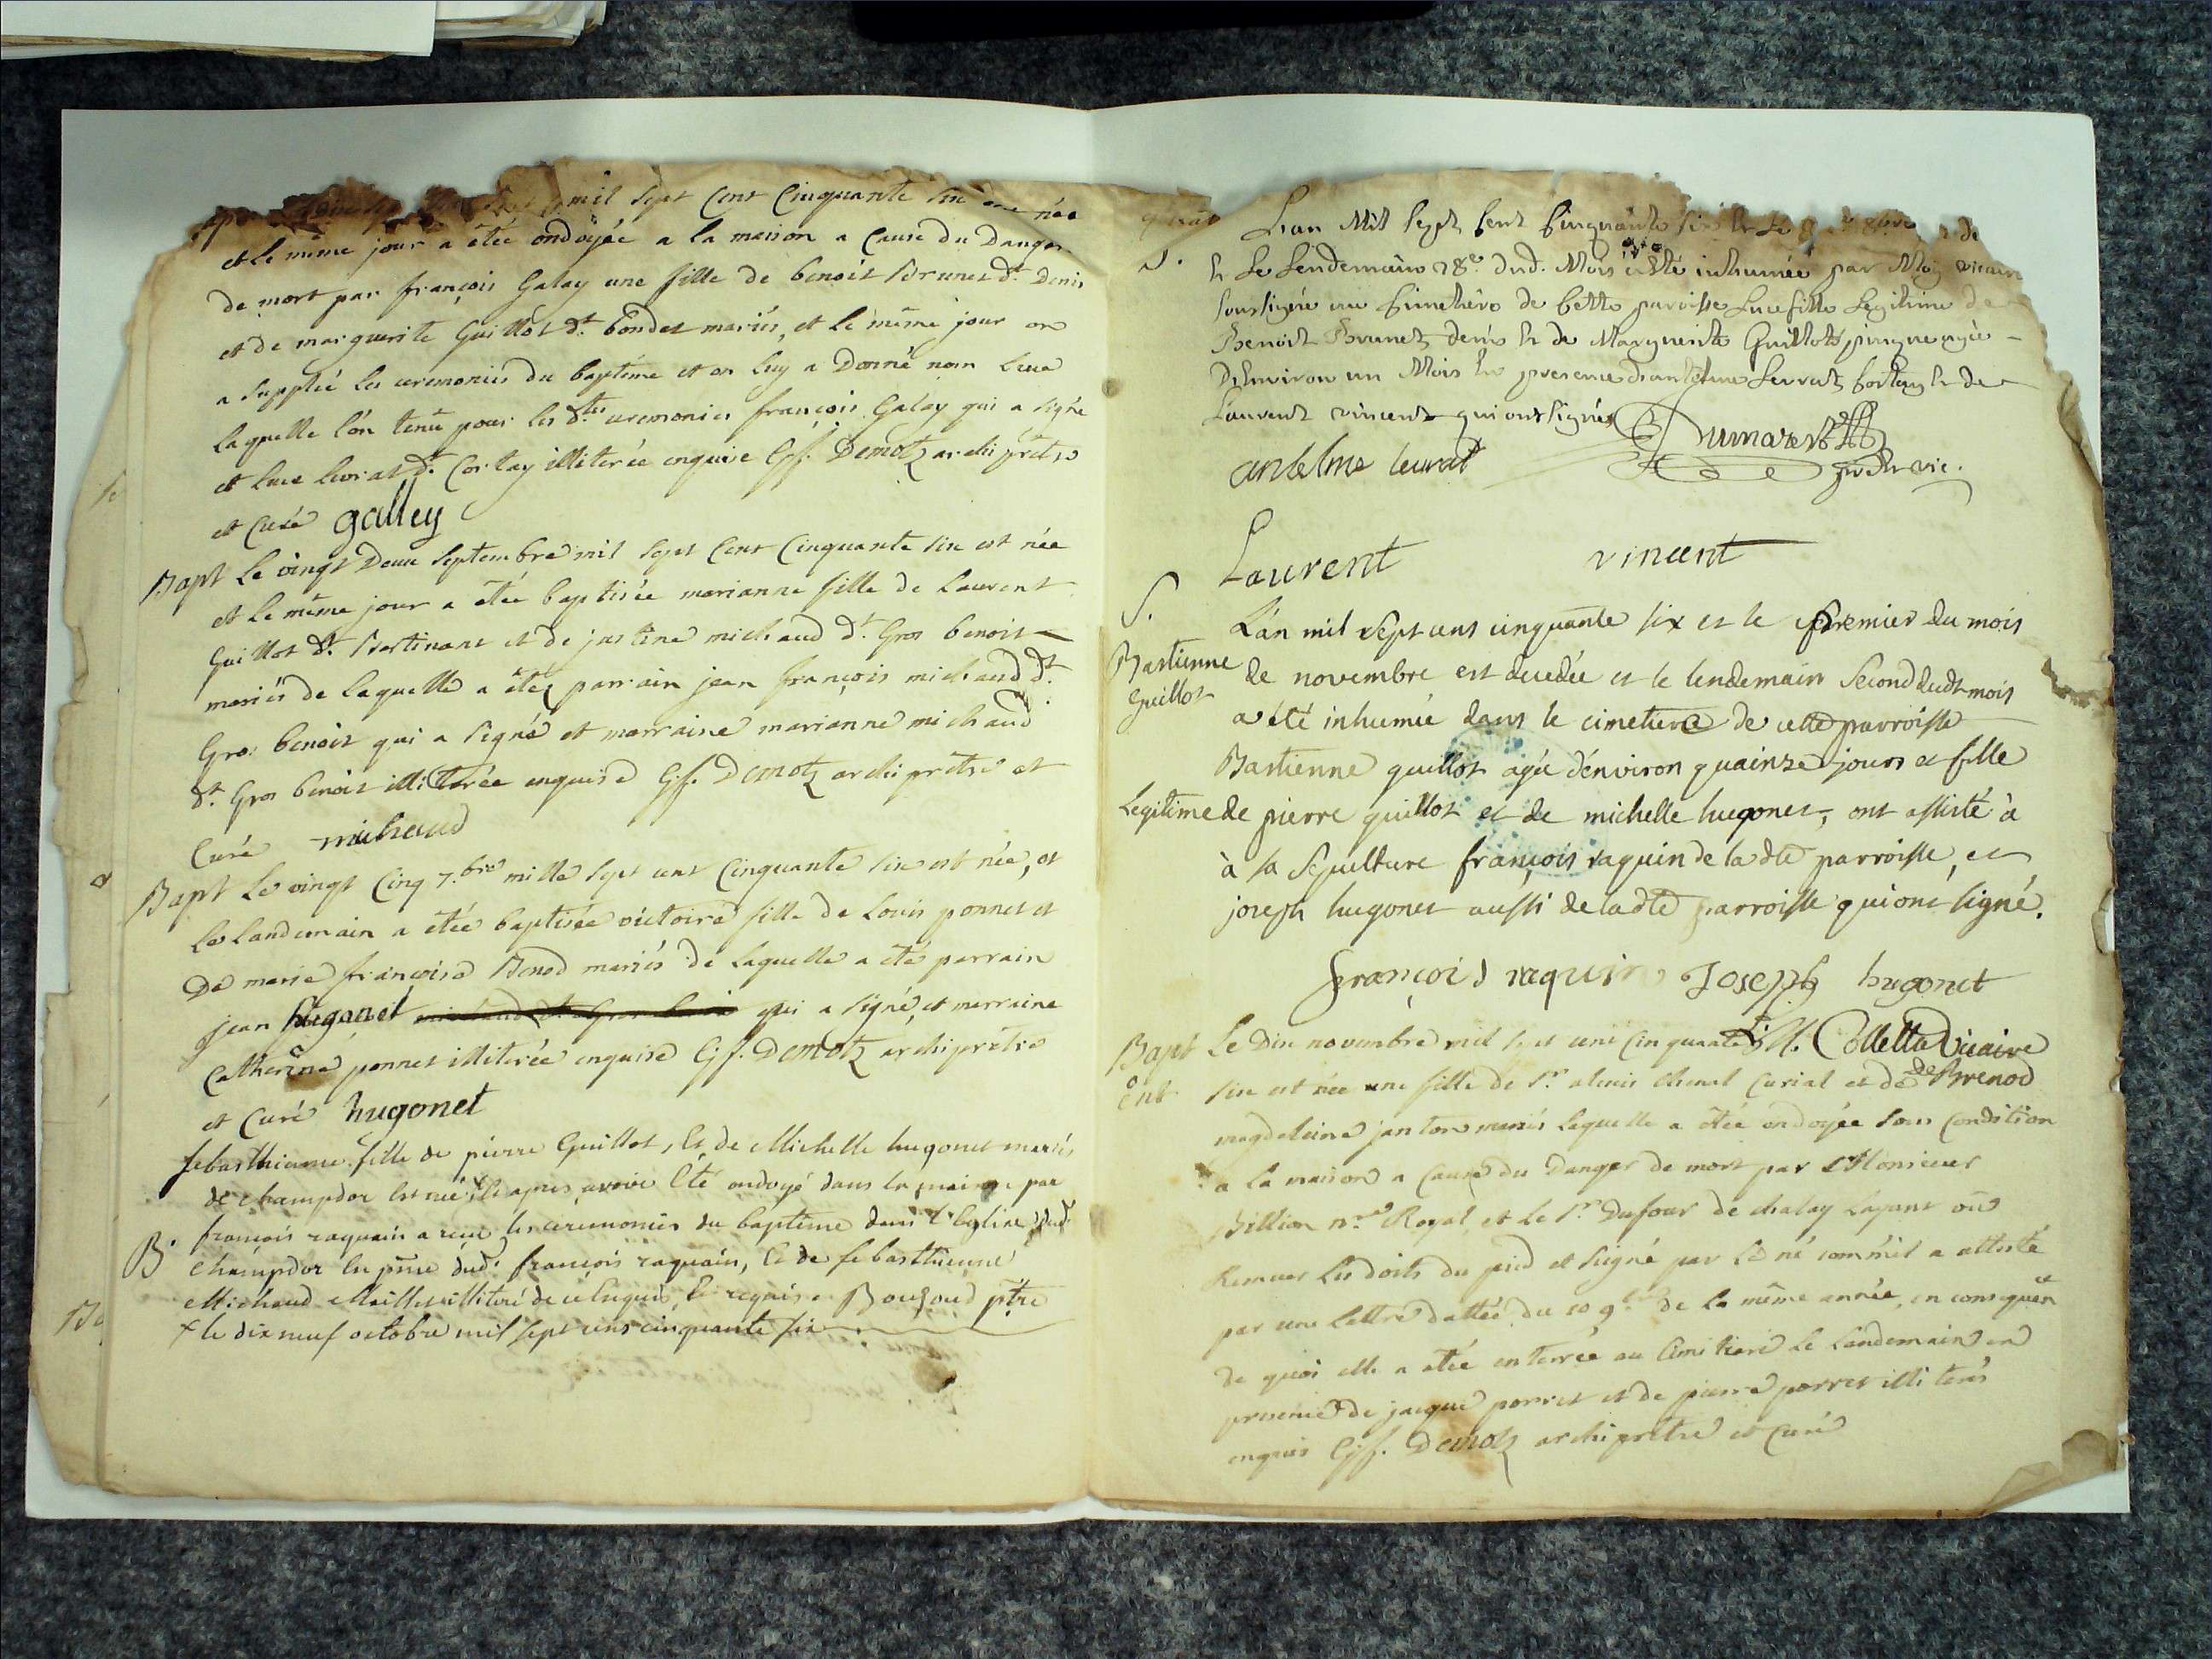 mil sept cent Cinquante six née
et le même jour a étée ondoyée a la maison a Cause du Danger
de mort par françois Galay une fille de benoit brunet dt. Denis
et de marguerite Guillot dt. bondet mariés, et le même jour on
a supplié les ceremonies du baptême et on luy a Donné nom Luce
laquelle l'on tenü pour les dtes ceremonies françois Galay qui a signé
et luce leurat dt. Cortay illiterée enquise Gf. Demotz archiprêtre
et Curé galley
Bapt le vingt Deux septembre mil sept Cent Cinquante six est née
et le même jour a étée baptisée marianne fille de Laurent
Guillot dt. et de justine michaud dt. Gros benoit
mariés de laquelle a étéz parrain jean françois michaud dt.
Gros benoit qui a signé et marraine marianne michaud
dt. Gros benoit illiterée enquise Gf. Demotz archiprêtre et
Curé michaud
Bapt Le vingt Cinq 7.bre mille sept cent Cinquante six est née, et
le landemain a étée baptisée victoire fille de Louis ponnet et
de marie françoise Benod mariés de laquelle a été parrain
jean hugonet qui a signé, et marraine
Catherine ponnet illiterée enquise Gf. Demotz archiprêtre
et Curé hugonet
sebasthienne fille de pierre Guillot, et de Michelle hugonet mariés
de champdor est née, et apres avoir été ondoyé dans la maison par
françois raquain a reçu les ceremonies du baptême dans l'Eglise dud.
B. champdor en pnce dud. françois raquain, et de sebasthienne
Michaud Maillet illiteré de ce Enquis, et requis. Bouzoud ptre
+ le dix neuf octobre mil sept cens cinquante six
L'an Mil sept Cent Cinquante six et le 8bre
S. et le lendemain 18e. dud. Mois a été inhumée par Moy vicaire
soussigné au Cimetière de Cette paroisse Luce fille legitime de
Benoit Brunet denis et de Marguerite Guillot agée
D'Environ un Mois En presence d'antelme Leurat Cortay et de
Laurent vincent qui ont signés Dumarest
antelme leurat ptre vic.
Laurent vincent
S. L'an mil sept cens cinquante six et le premier du mois
Bastienne Guillot de novembre est decedée et le lendemain second dudt mois
a été inhumée dans le cimetiere de cette parroisse
Bastienne guillot agée d'environ quainze jours et fille
legitime de pierre guillot et de michelle hugonet, ont assisté à
à sa sepulture françois raquin de ladte parroisse, et
joseph hugonet aussi de ladte parroisse qui ont signé.
françois raquin Joseph hugonet
Bapt Le Dix novembre mil sept cent Cinquante Colletta vicaire
ent six est née une fille de sr. alexis Chenel Curial et de de Brenod
magdeleine janton mariés lequelle a étée ondoyée sous Condition
a la maison a Cause du Danger de mort par Monsieur
Billion nre Royal et le sr Dufour de chalay l'ayant vû
Remuer les doits du pied et signé par a attesté
par une lettre dattée du 10 9bre de la même année, en consequen
de quoi elle a étée enterrée au Cimetiere le landemain en
presence de jacque porret et de pierre porret illiterés
enquis Gf. Demotz archiprêtre et Curé